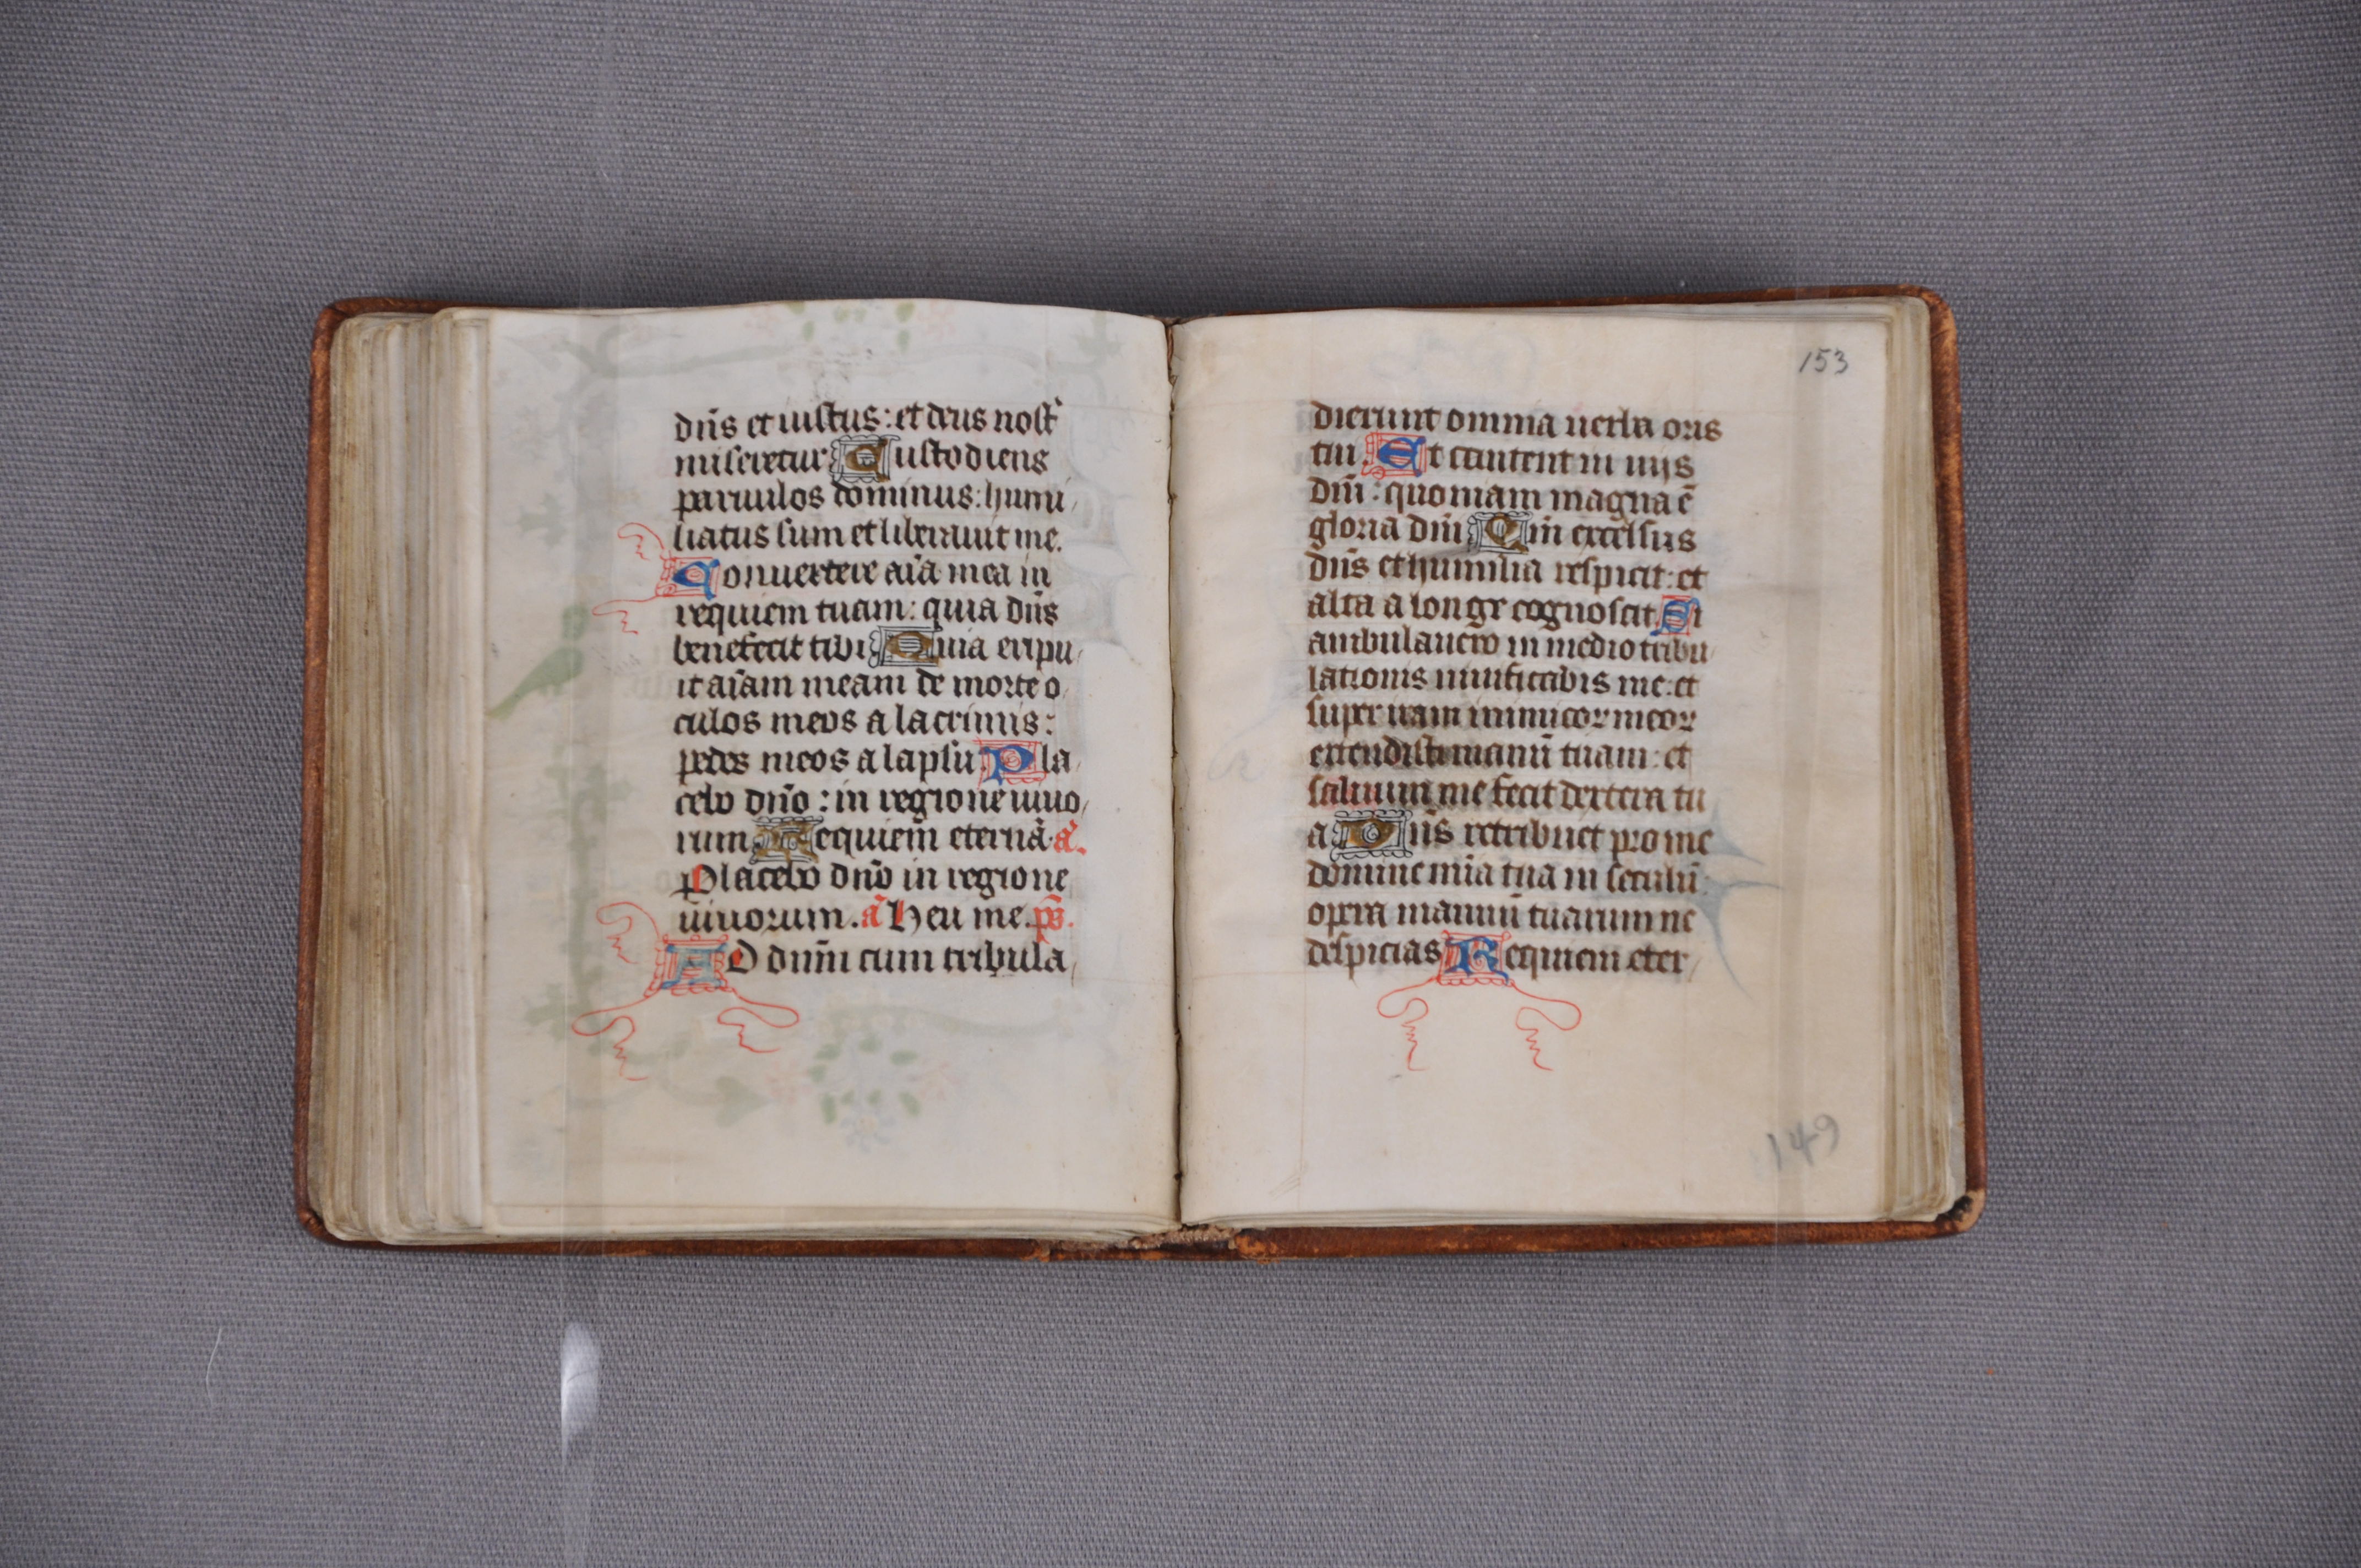 dn̄s et iustus: et deus nost̉
miseretur Custodiens
paruulos dominus: humi
liatus sum et liberauit me.
Conuertere aīa mea in
requiem tuam: quia dn̄s
benefecit tibi Quia eripu
it aīam meam de morte o
culos meos a lacrimis:
pedes meos a lapsu Pla
cebo dn̄o: in regione uiuo
rum Requiem eternā. ā.
Placebo dn̄o in regione
uiuorum. ā Heu me. ps̄.
AD dnm̄ cum tribula
153
dierunt omnia uerba oris
tui. Et cantent in uijs
dn̄i: quoniam magna ē
gloria dn̄i Qm̄ excelsus
dn̄s et humilia respicit: et
alta a longe cognoscit Si
ambulauero in medio tribu
lationis uiuificabis me: et
super iram inimicoꝝ meoꝝ
extendisti manū tuam: et
saluum me fecit dextera tu
a Dn̄s retribuet pro me
domine mīa tua in seculū
opera manuū tuarum ne
despicias Requiem eter
149